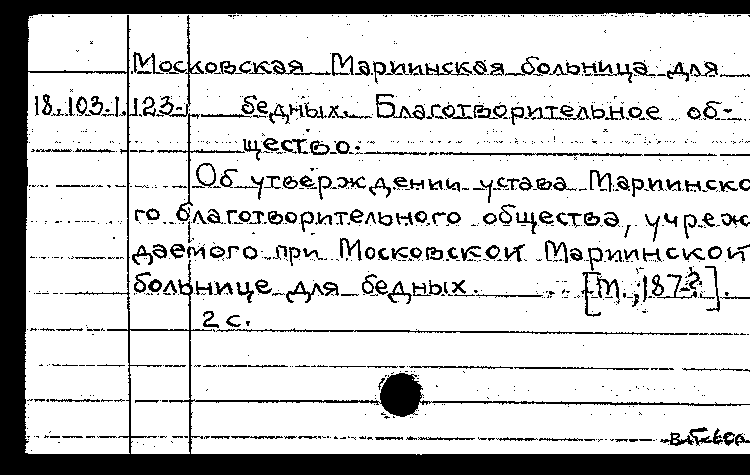 Московская Мариинская больница для
18.103.1.123-1 бедных. Благотворительное об-
щество.
Об утверждении устава Мариинско
го благотворительного общества, учреж
даемого при Московской Мариинской
больнице для бедных. [М., 187-?].
2 с.